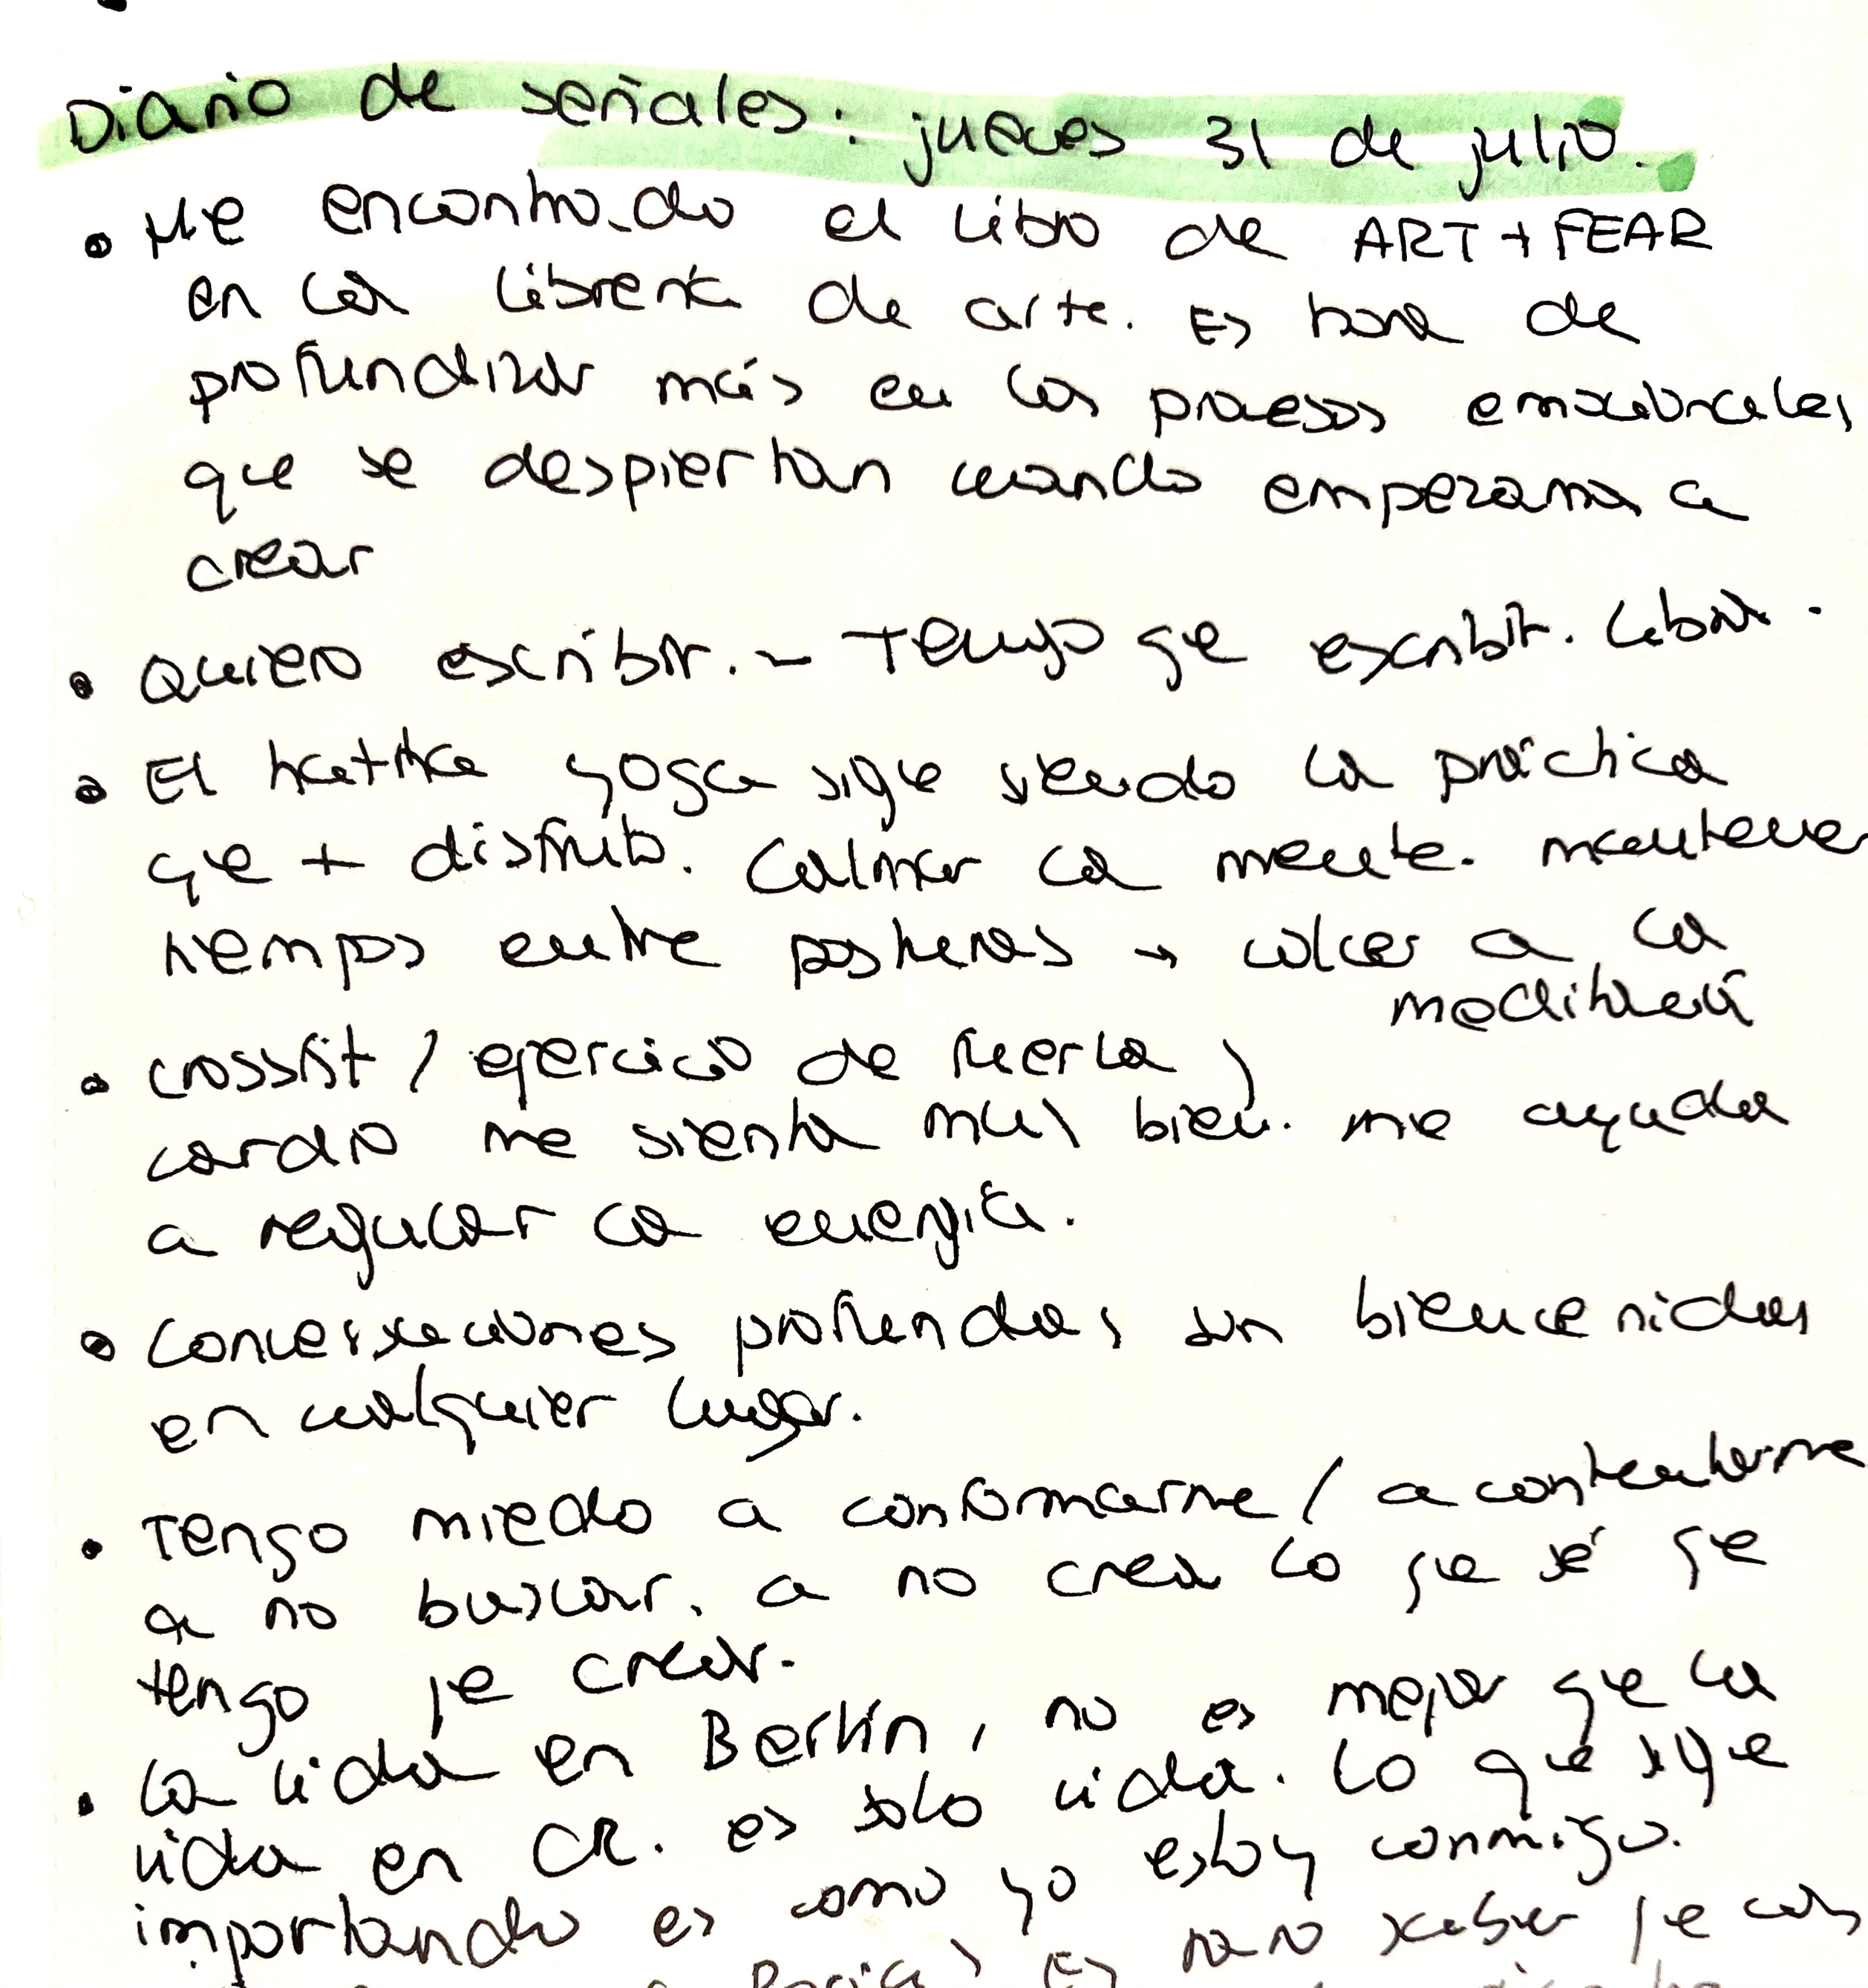 Diario de señales: jueves 31 de julio.
• He encontrado el libro de ART + FEAR
en la librería de arte. Es hora de
profundizar más en los procesos emocionales
que se despiertan cuando empezamos a
crear
• Quiero escribir. - Tengo que escribir. Libros.
• El hatha yoga sigue siendo la práctica
que + disfruto. Calmar la mente. mantener
tiempos entre posturas → volver a la
meditación
• crossfit / ejercicio de fuerza /
cardio me sienta muy bien. me ayuda
a regular la energía.
• Conversaciones profundas son bienvenidas
en cualquier lugar.
• Tengo miedo a conformarme / a contentarme
a no buscar. a no crear lo que sé que
tengo que crear.
• La vida en Berlín, no es mejor que la
vida en CR. es solo vida. Lo que sigue
importando es como yo estoy conmigo.
Es raro saber que las